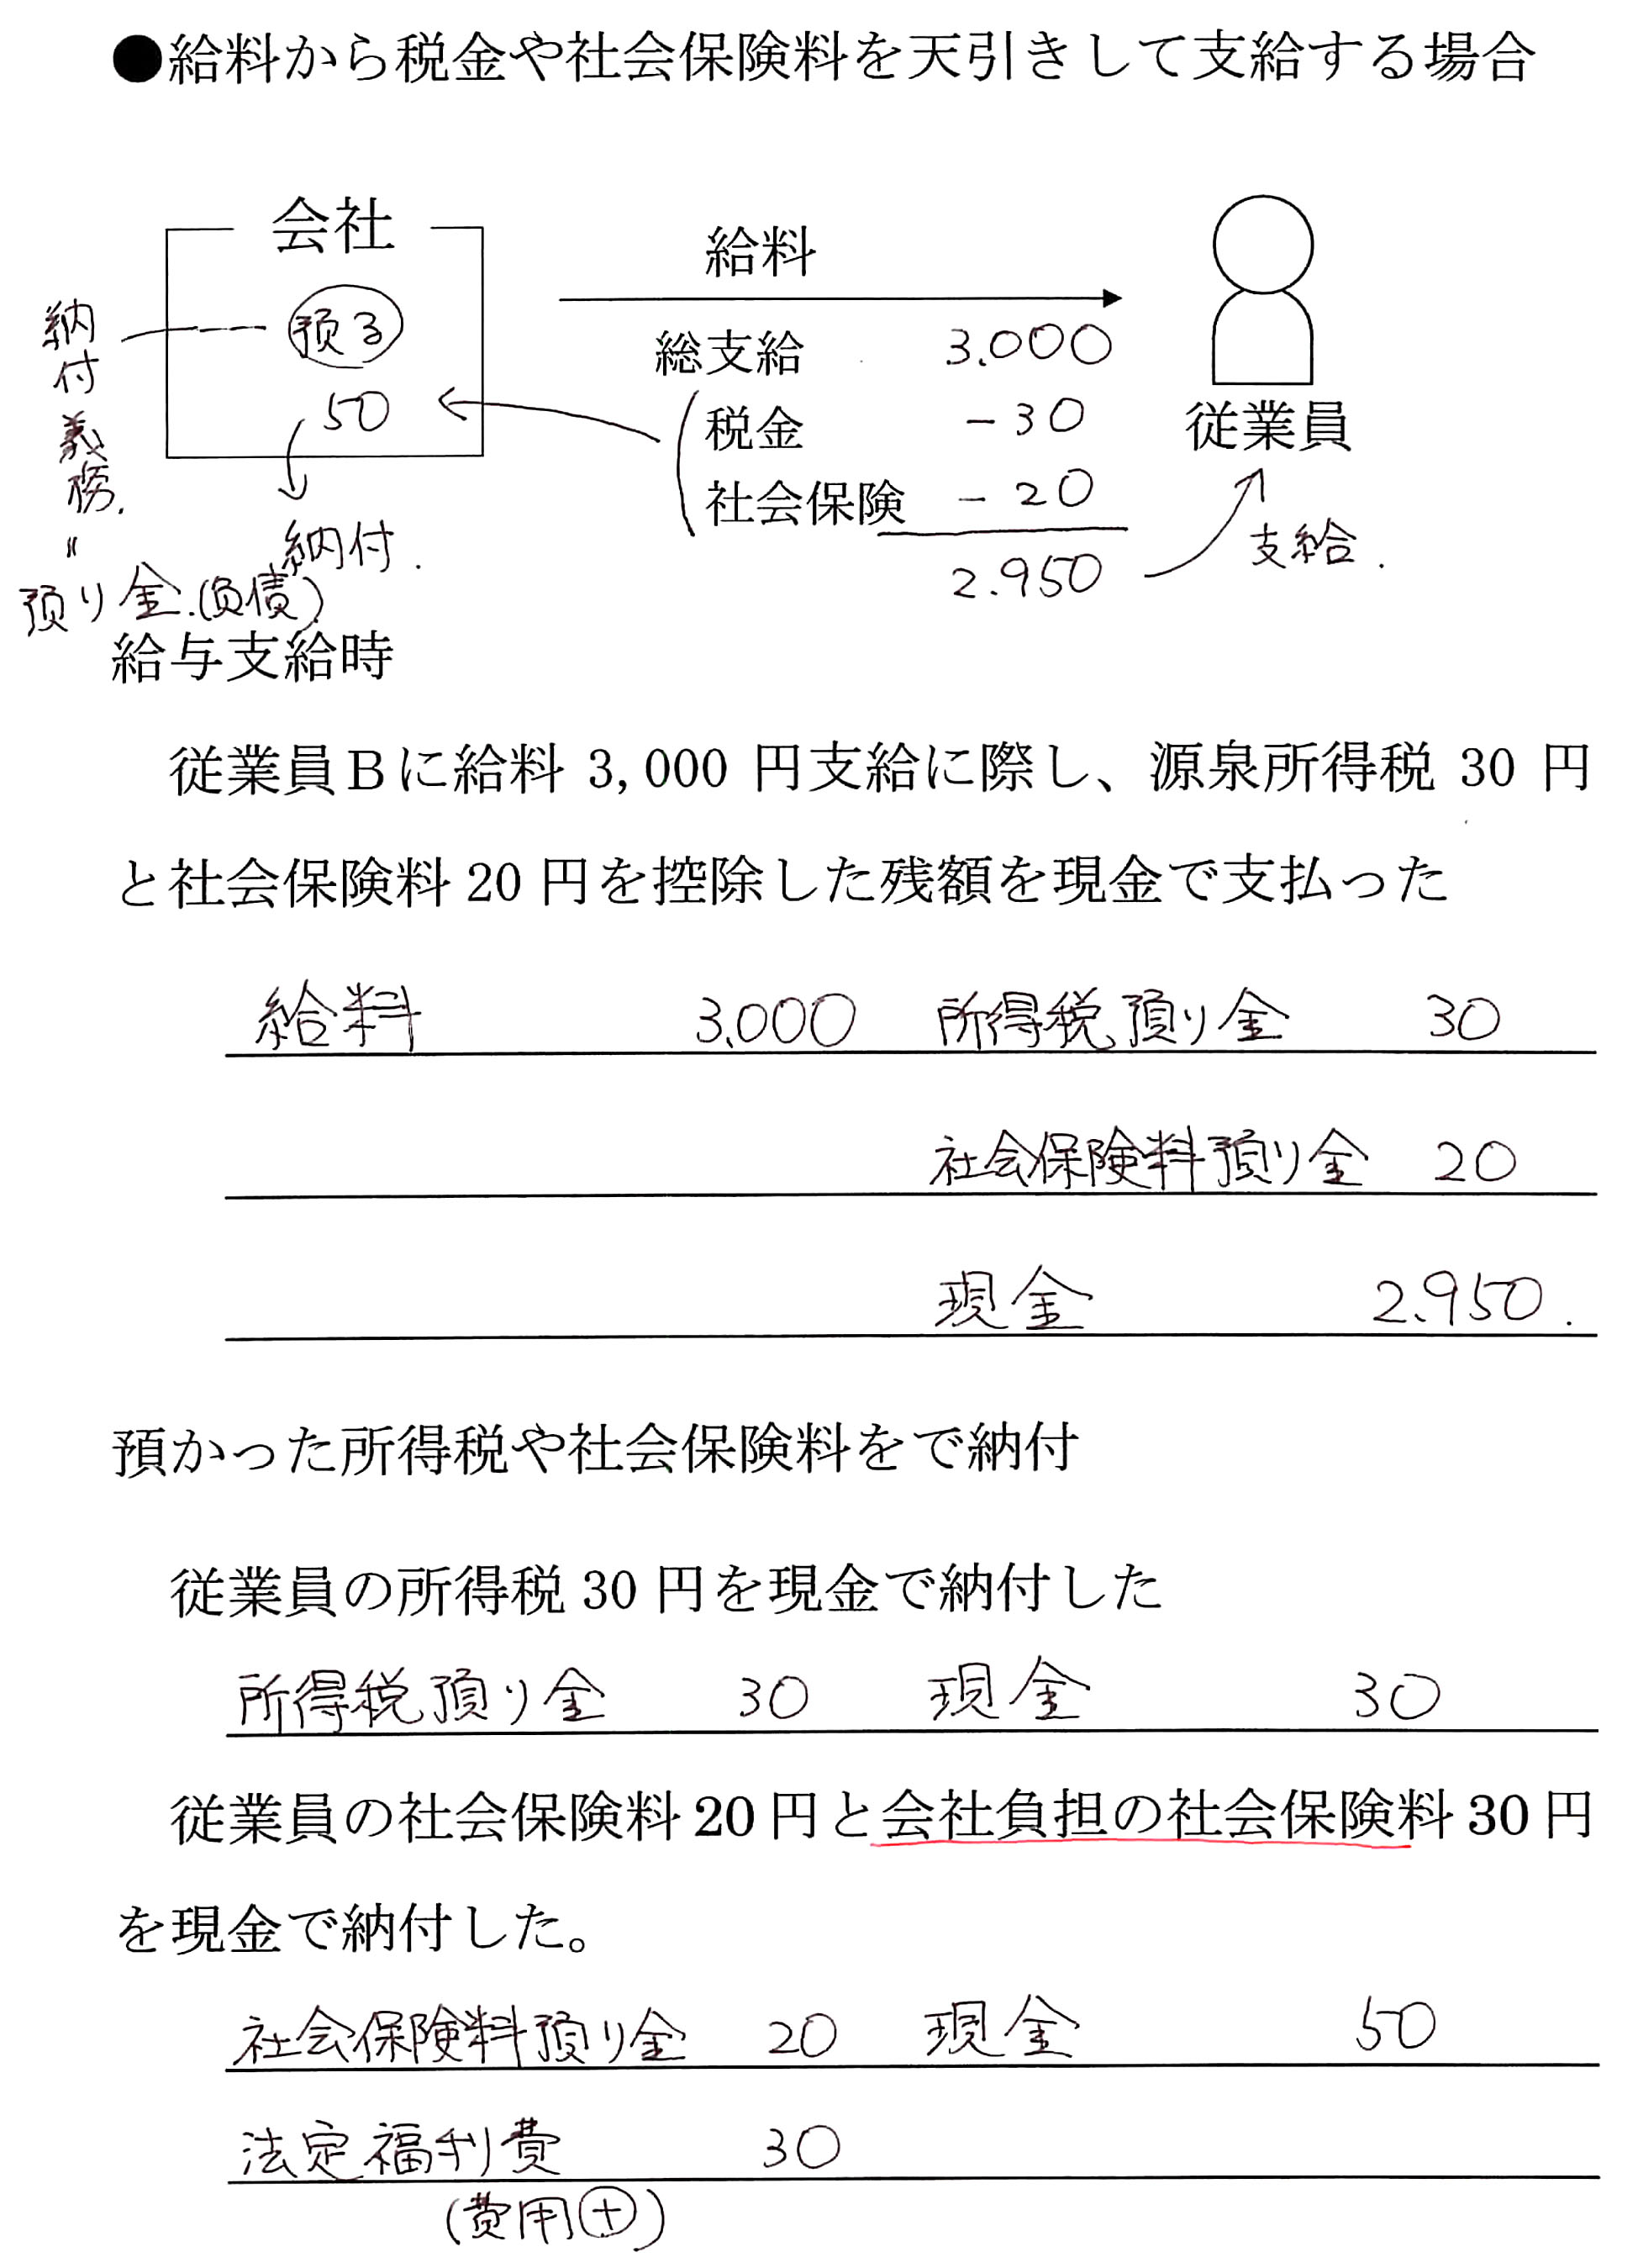 ●給料から税金や社会保険料を天引きして支給する場合
会社
給料
預る
納付義務.
総支給 3.000
50
税金 -30
従業員
社会保険 -20
〃
納付.
2.950
支給.
預り金.(負債)
給与支給時
従業員Bに給料 3,000 円支給に際し、源泉所得税 30 円
と社会保険料 20 円を控除した残額を現金で支払った
給料 3,000 所得税預り金 30
社会保険料預り金 20
現金 2.950.
預かった所得税や社会保険料をで納付
従業員の所得税 30 円を現金で納付した
所得税預り金 30 現金 30
従業員の社会保険料 20 円と会社負担の社会保険料 30 円
を現金で納付した。
社会保険料預り金 20 現金 50
法定福利費 30
(費用⊕)